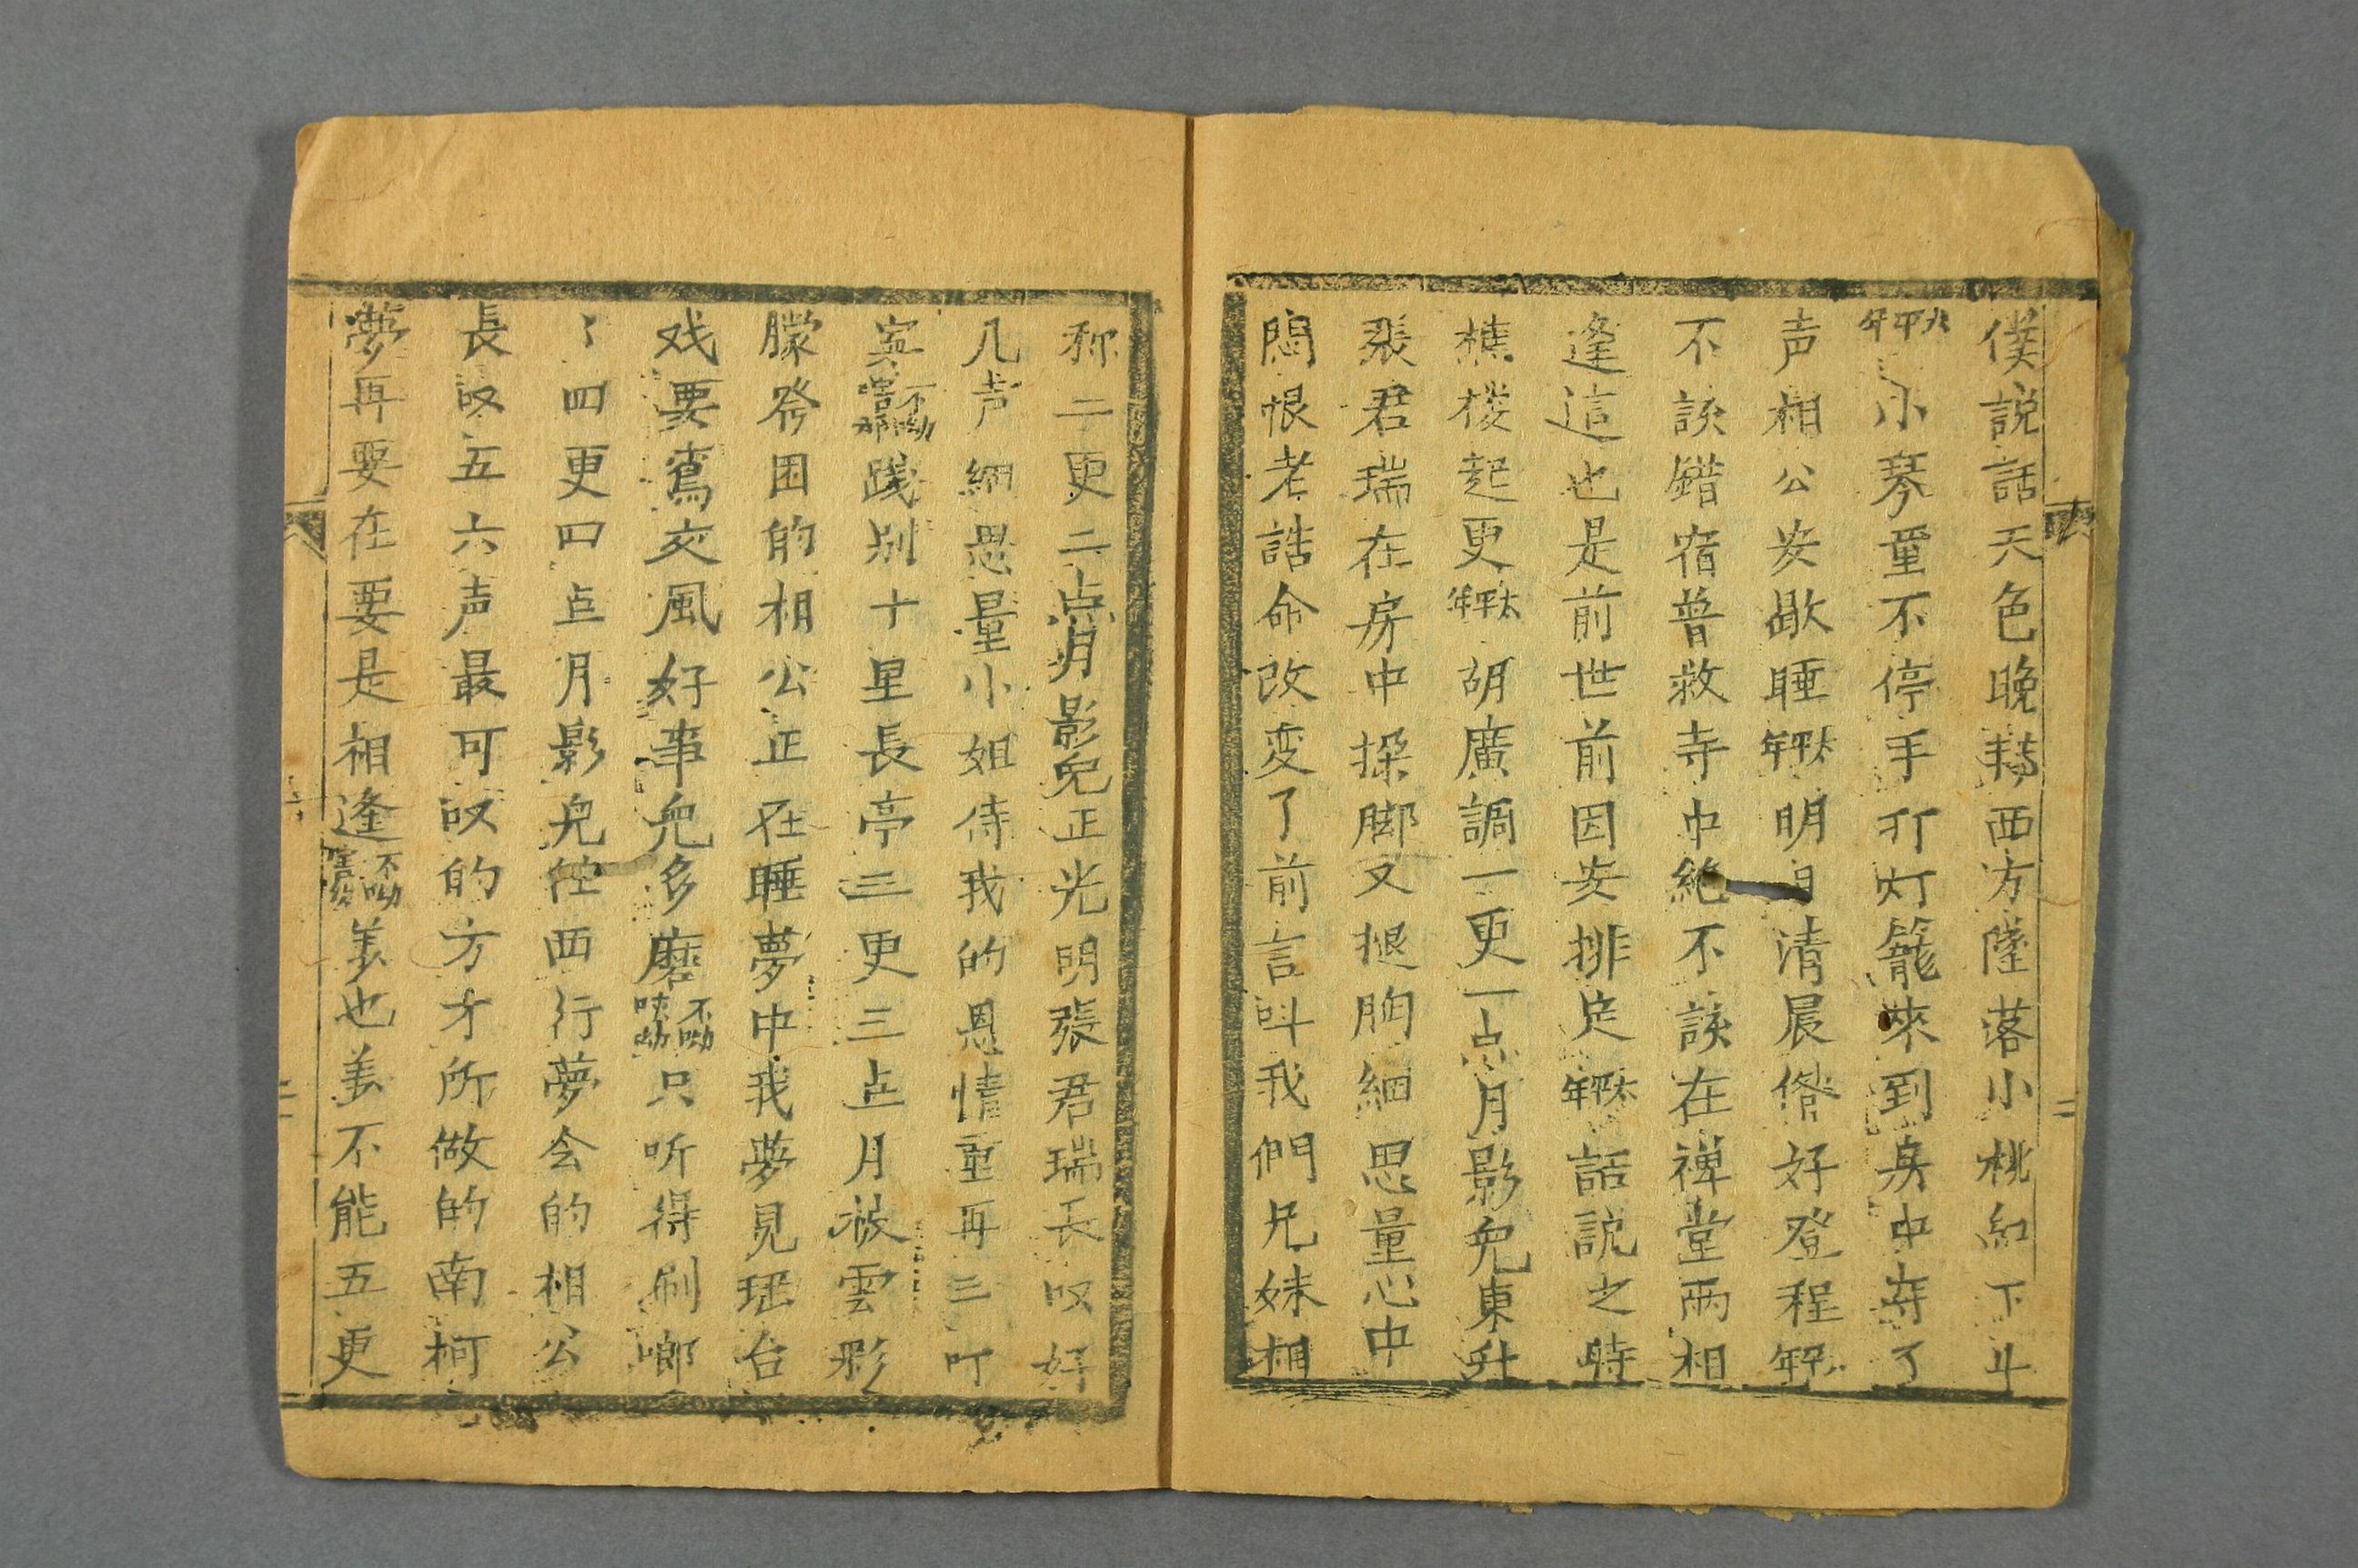 僕説話天色晚轉西方墜落小桃紅下斗
太平年小琴童不停手打灯籠來到房中寺了
声相公安歇睡太平年明日清晨俻好登程太平年
不該錯宿普救寺中絶不該在禅堂兩相
逢這也是前世前因安排定太平年話説之時
樵楼起更太平年胡廣調一更一点月影兒東升
張君瑞在房中操脚又搥胸細思量心中
悶恨老誥命改変了前言呌我們兄妹相
称二更二点月影兒正光明張君瑞長叹好
几声細思量小姐待我的恩情重再三叮
寕不呦嗐哪踐别十里長亭三更三点月被雲彩
朦発困的相公正在睡夢中我夢見瑶台
戏耍鸞交風好事兒多磨不呦咳呦只听得刷啷
〻四更四点月影兒往西行夢会的相公
長叹五六声最可叹的方才所做的南柯
夢再要在要是相逢不呦嗐羙也羙不能五更